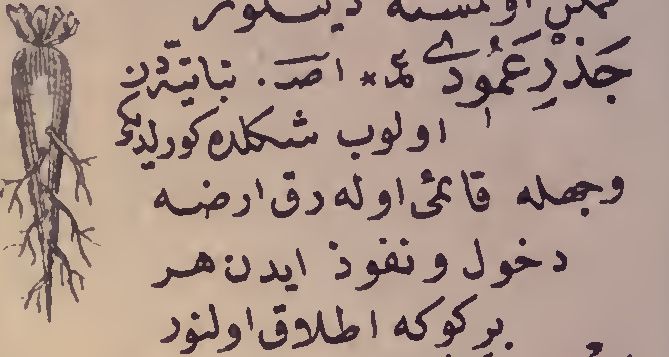 اولمسنه دینلور
جَذْرِ عَمُودى ع * ا ص . نباتیه دن
اولوب شكلده كورلدیكى
وجهله قائمًى اوله رق ارضه
دخول و نفوذ ایدن هر
بر كوكه اطلاق اولنور